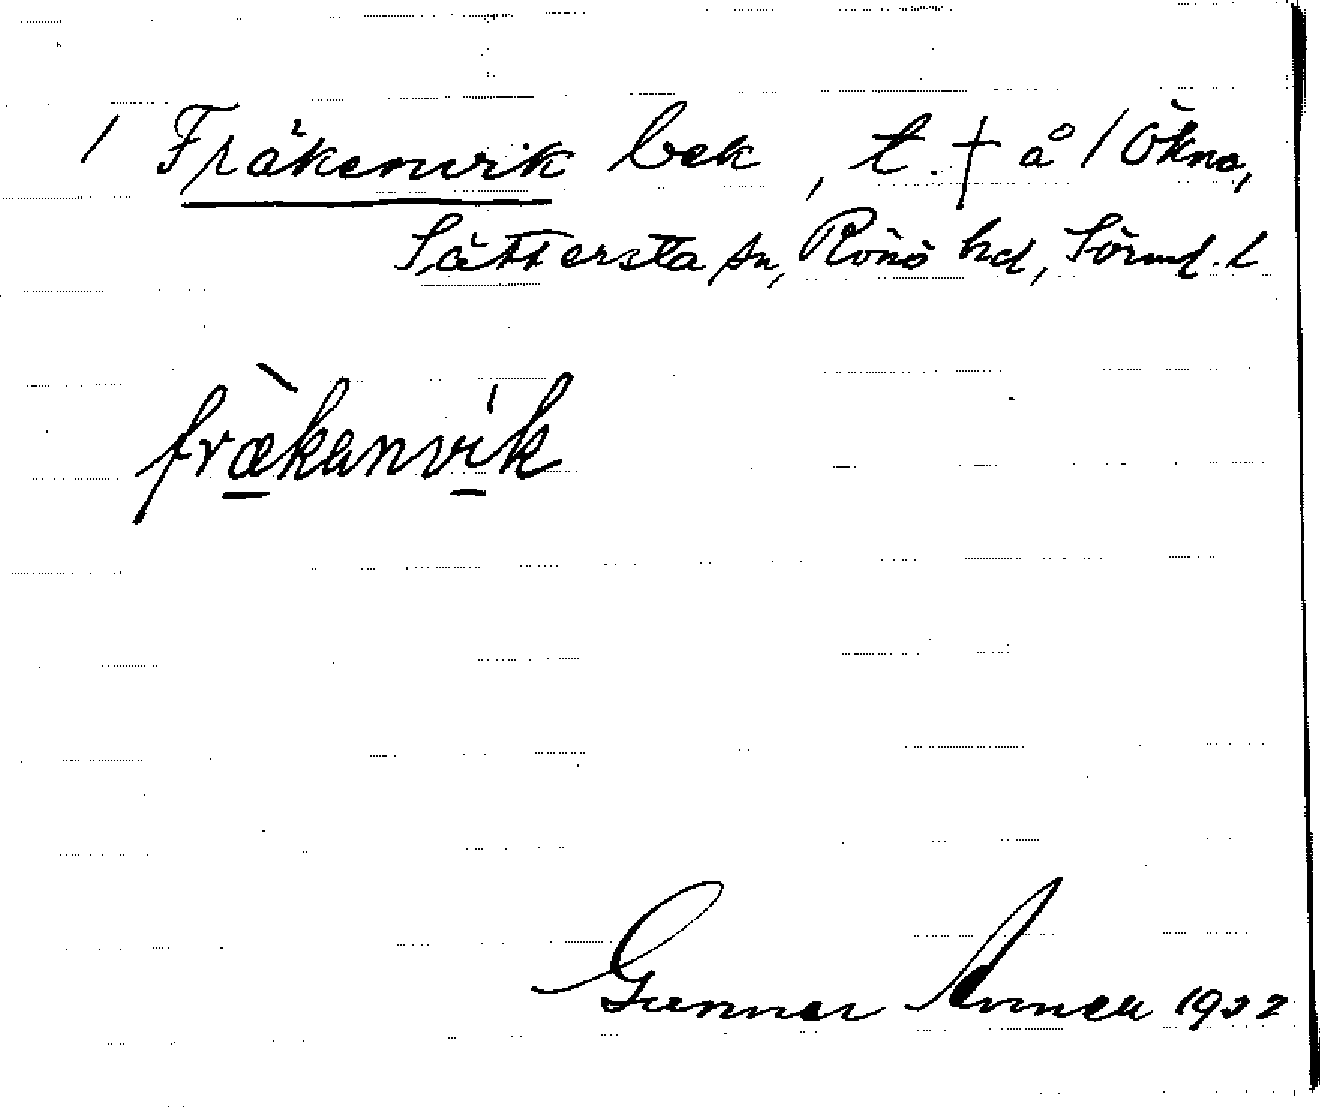 1 Fräkenvik bek, t. † å 1 Ökna,
Sättersta sn, Rönö hd, Sörml. l
fræ̀kanvík
Gunnar 1932